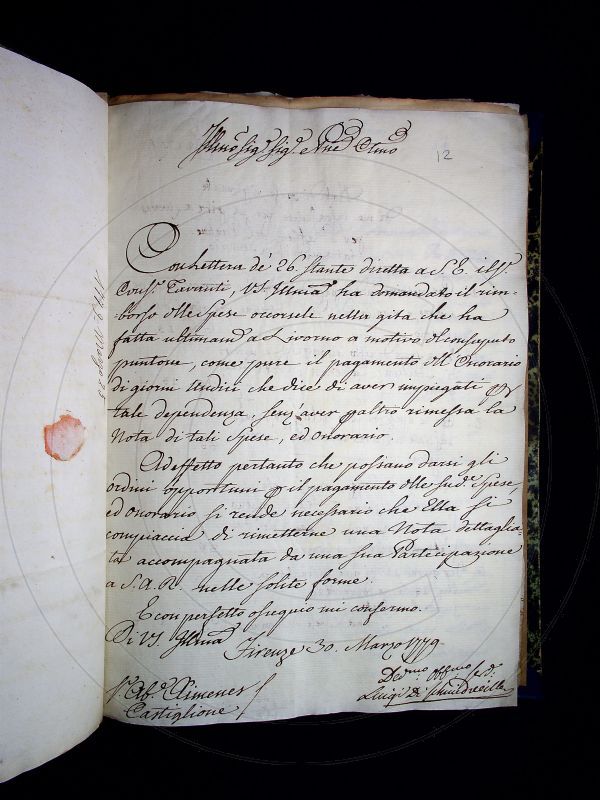 Illmo Sig.r Sig.r e Pne Colmo
12
Con Lettera de' 26. stante diretta a S. E. il S.r
Cons.re Tavanti, VS. Illma ha domandato il rim-
borso delle Spese occorsele nella gita che ha
fatta ultimam.te a Livorno a motivo del consaputo
puntone, come pure il pagamento dell'Onorario
di giorni Undici che dice di aver impiegati per
tale dependenza, senz'aver per altro rimessa la
Nota di tali Spese, ed Onorario.
Ad effetto pertanto che possano darsi gli
ordini opportuni per il pagamento delle sud.e Spese,
ed Onorario si rende necessario che Ella si
compiaccia di rimetterne una Nota dettaglia-
ta accompagnata da una sua Partecipazione
a S. A. R. nelle solite forme.
E con perfetto ossequio mi confermo.
Di VS. Illma Firenze 30. Marzo 1779
Dev.mo Obb.mo Se.d.
S.r Ab.e Ximenes Luigi
Castiglione